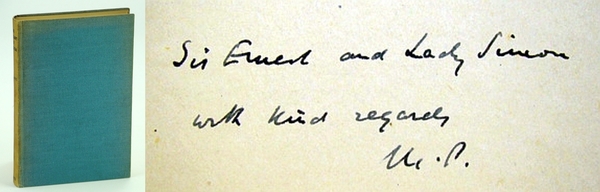 Sir Ernest and Lady Simon
with kind regards
M.P.